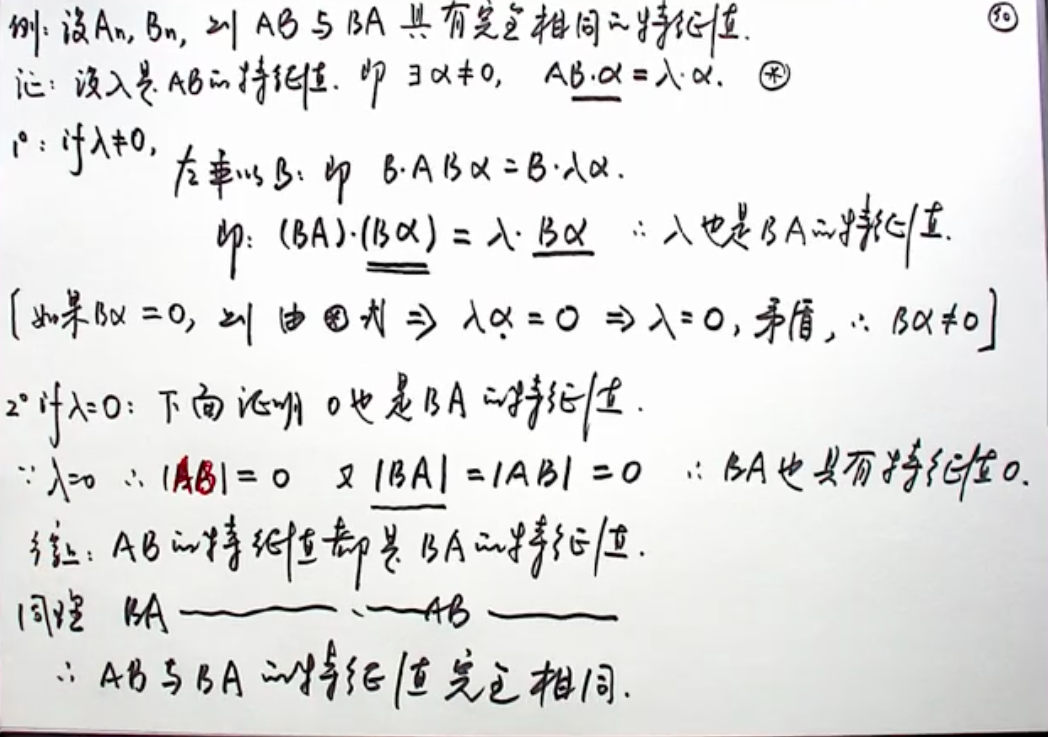 例: 设An, Bn, 则 AB 与 BA 具有完全相同的特征值. ㊿
证: 设λ是AB的特征值. 即 ∃α≠0, AB·α=λ·α. ⊛
1°: if λ≠0,
左乘以B: 即 B·ABα=B·λα.
即: (BA)·(Bα)=λ·Bα ∴ λ也是BA的特征值.
[如果Bα=0, 则 由⊛式 ⇒ λα=0 ⇒ λ=0, 矛盾, ∴ Bα≠0]
2° if λ=0: 下面证明 0也是BA的特征值.
∵ λ=0 ∴ |AB|=0 又 |BA|=|AB|=0 ∴ BA也具有特征值0.
综上: AB的特征值都是BA的特征值.
同理 BA ——— ·——AB ———
∴ AB与BA的特征值完全相同.